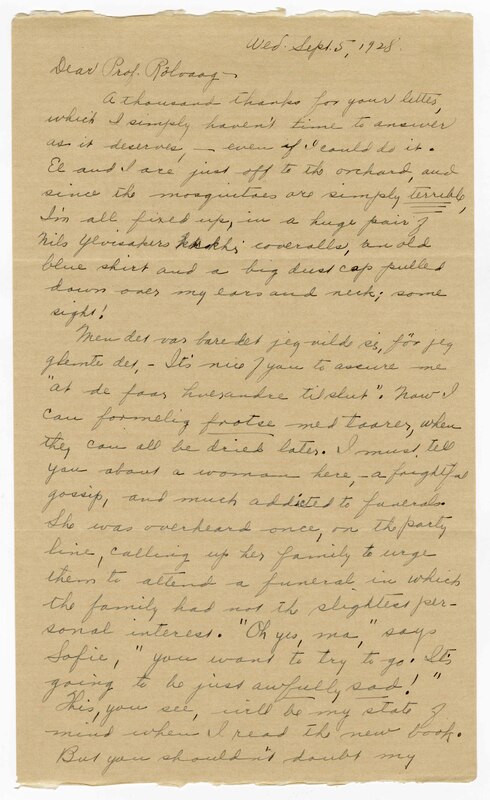 Wed. Sept. 5, 1928.
Dear Prof. Rölvaag –
A thousand thanks for your letter,
which I simply haven't time to answer
as it deserves, – even if I could do it.
El and I are just off to the orchard, and
since the mosquitoes are simply terrible,
I'm all fixed up, in a huge pair of
Nils Ylvisakers khaki coveralls, an old
blue shirt and a big dust cap pulled
down over my ears and neck; some
sight!
Men det var bare det jeg vilde si, før jeg
glemte det, – It's nice of you to assure me
"at de faar hverandre tilslut". Now I
can formelig frotse med taarer, when
they can all be dried later. I must tell
you about a woman here, – a frightful
gossip, and much addicted to funerals.
She was overheard once, on the party
line, calling up her family to urge
them to attend a funeral in which
the family had not the slightest per-
sonal interest. "Oh yes, ma," says
Sofie, "you want to try to go. It's
going to be just awfully sad!"
This, you see, will be my state of
mind when I read the new book.
But you shouldn't doubt my